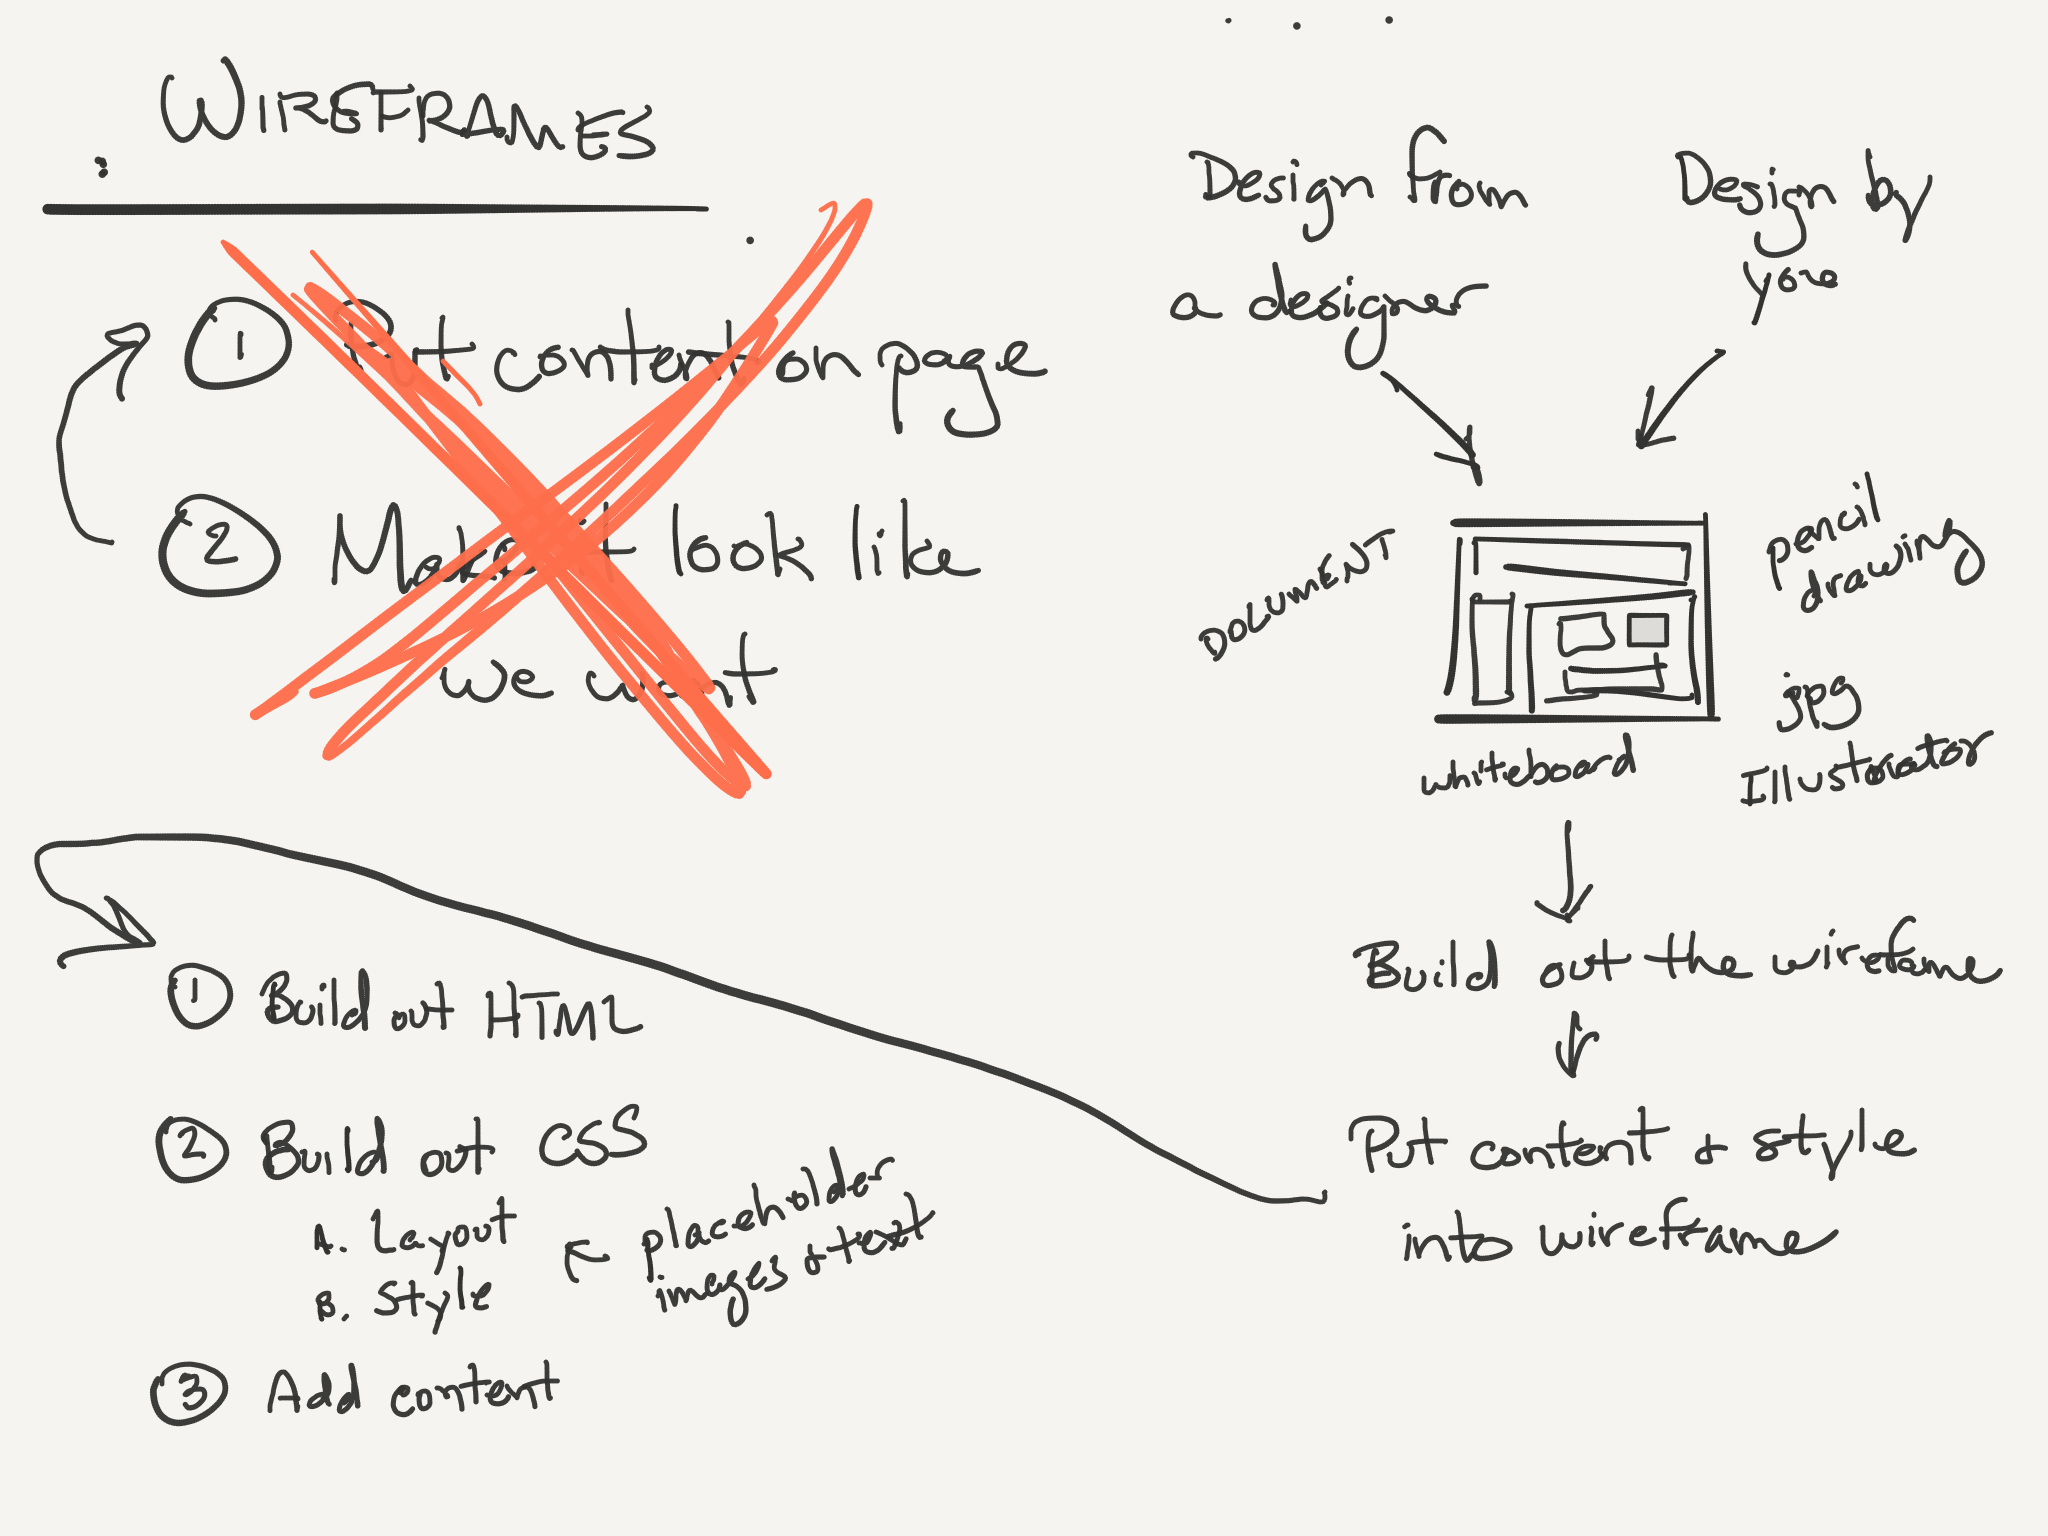 WIREFRAMES
1 Put content on page
2 Make it look like
we want
Design from
a designer
Design by
you
DOCUMENT
pencil
drawing
jpg
Illustorator
whiteboard
Build out the wirefame
Put content & style
into wireframe
1 Build out HTML
2 Build out CSS
A. Layout
B. Style
placeholder
images & text
3 Add content